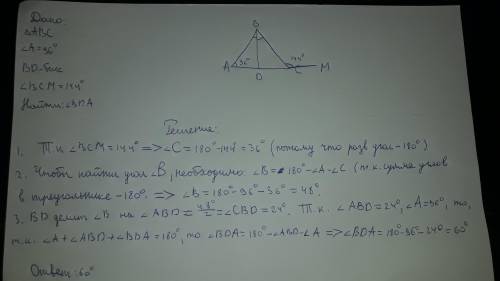 Дано:
△ABC
∠A=96°
BD-бис
∠BCM=144°
Найти: ∠BDA
B
A 36° D 144° C M
Решение:
1. Т.к ∠BCM=144° => ∠C=180°-144°=36° (потому что разв угол-180°)
2. Чтобы найти угол ∠B, необходимо: ∠B=180°-∠A-∠C (т.к. сумма углов
в треугольнике -180°. => ∠B=180°-96°-36°=48°.
3. BD делит ∠B на ∠ABD=48°/2=∠CBD=24°. Т.к. ∠ABD=24°, ∠A=96°, то,
т.к. ∠A+∠ABD+∠BDA=180°, то ∠BDA=180°-∠ABD-∠A => ∠BDA=180°-96°-24°=60°
Ответ: 60°